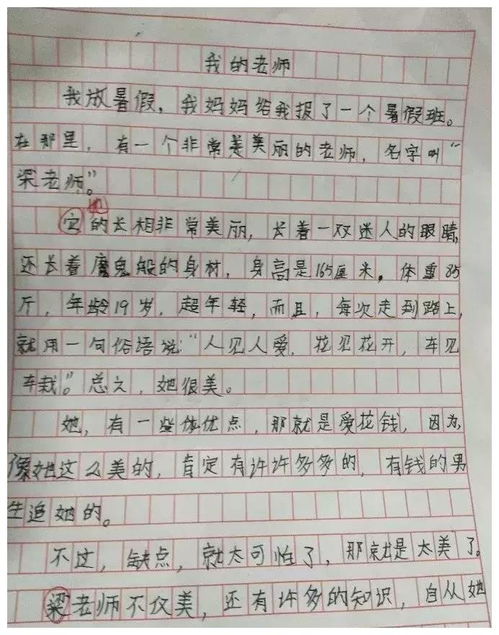 我的老师
我放暑假，我妈妈给我报了一个暑假班。
在那里，有一个非常美美丽的老师，名字叫“
梁老师”。
她
它的长相非常美丽，长着一双迷人的眼睛，
还长着魔鬼般的身材，身高是165厘米，体重85
斤，年龄19岁，超年轻，而且，每次走到路上，
就用一句俗语说：“人见人爱，花见花开，车见
车栽”。总之，她很美。
她，有一些优点，那就是爱花钱，因为，
像她这么美的，肯定有许许多多的，有钱的男
生追她的。
不过，缺点，就太可怕了，那就是太美了。
梁老师不仅美，还有许多的知识，自从她